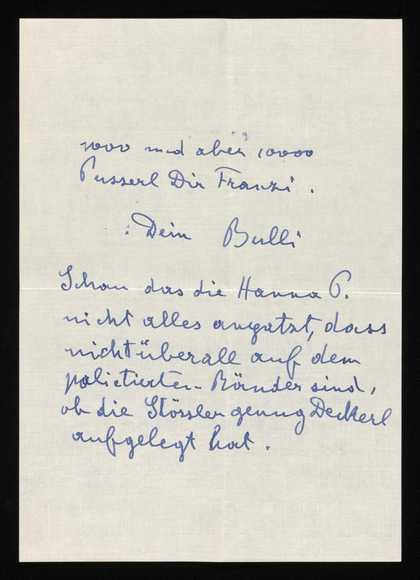 1000 und aber 10000
Pusserl Dir Franzi.
: Dein Bulli
Schau das die Hanna P.
nicht alles angatzt, dass
nicht überall auf dem
polietierten Ränder sind,
ob die Stössler genug Deckerl
aufgelegt hat.